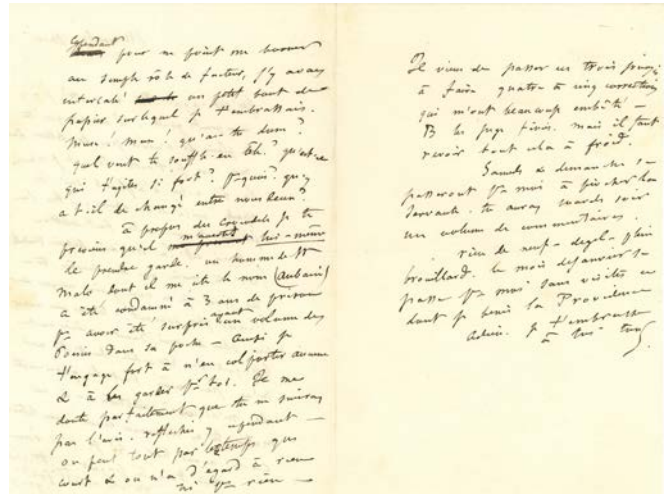 Cependant pour ne point me borner
au simple rôle de facteur, j'y avais
intercalé un petit bout de
papier sur lequel je t'embrassais.
Muse! Muse! qu'as-tu donc?
quel vent te souffle en tête? qu'est-ce
qui t'agite si fort? pourquoi? qu'y
a-t-il de changé entre nous deux?
à propos des je te
préviens qu'il m'avertit lui-même
de prendre garde. un homme de St
Malo dont il me cite le nom (Aubain)
a été condamné à 3 ans de prison
pr avoir été surpris ayant un volume des
dans sa poche – Ainsi je
t'engage fort à n'en colporter aucune
& à les garder pr toi. Je me
doute parfaitement que tu ne suivras
pas l'avis. réfléchis-y cependant –
on peut tout par le temps qui
court & on n'a d'égard à rien
ni pr rien –
Je viens de passer ces trois jours-ci
à faire quatre à cinq corrections
qui m'ont beaucoup embêté –
B les juge finis. mais il faut
revoir tout cela à froid.
Samedi & dimanche se
passeront pr moi à piocher ton
servante. tu auras mardi soir
un volume de commentaires.
rien de neuf – dégel – plein
brouillard. le mois de janvier se
passe pr moi sans visites ce
dont je bénis la Providence
Adieu. Je t'embrasse
à toi ton